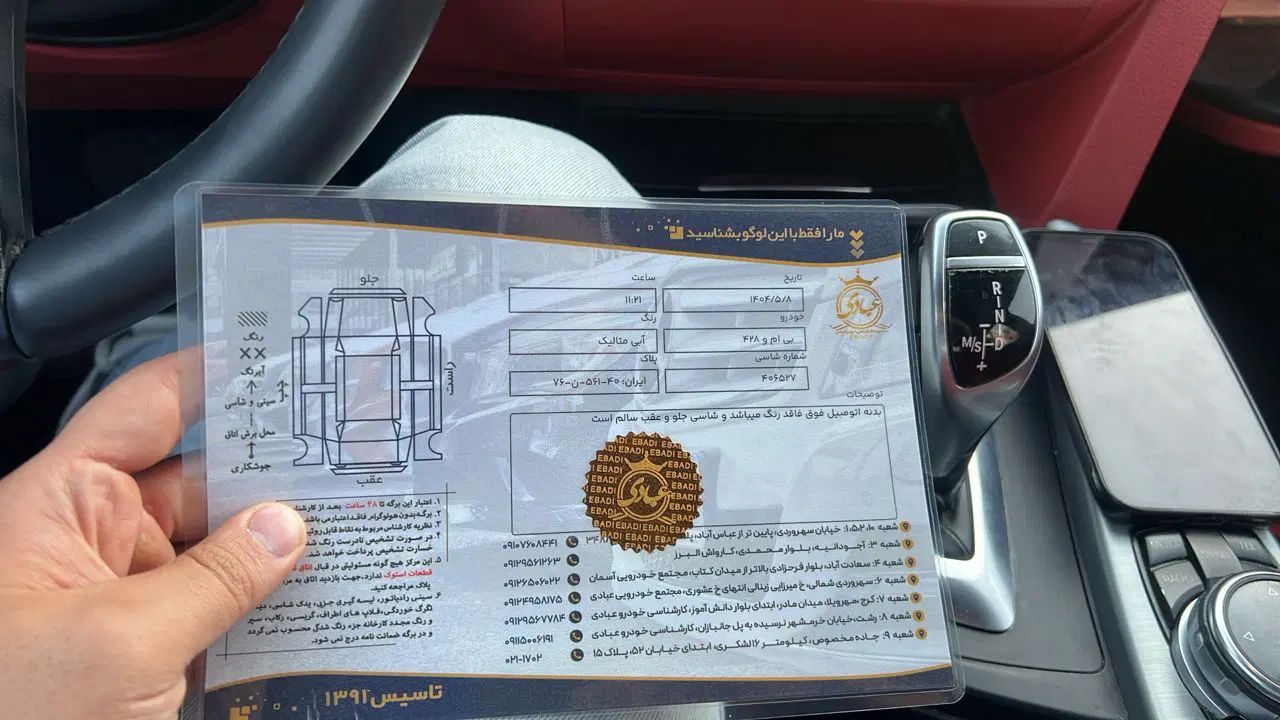 ما را فقط با این لوگو بشناسید
عبادی
EBADI
تاریخ
۱۴۰۴/۵/۸
ساعت
۱۱:۲۱
خودرو
بی ام و ۴۲۸
رنگ
آبی متالیک
شماره شاسی
۴۰۶۵۲۷
پلاک
ایران: ۴۰-۵۶۱-ن-۷۶
توضیحات
بدنه اتومبیل فوق فاقد رنگ میباشد و شاسی جلو و عقب سالم است
EBADI EBADI EBADI
عبادی
جلو
راست
عقب
رنگ
XX
آبرنگ
سینی و شاسی
محل برش اتاق
جوشکاری
۱. اعتبار این برگه تا ۴۸ ساعت بعد از کارشنا
۲. برگه بدون هولوگرام فاقد اعتبار می باش
۳. نظریه کارشناس مربوط به نقاط قابل رو
۴. در صورت تشخیص نادرست رنگ
خسارت تشخیص پرداخت خواهد شد.
۵. این مرکز هیچ گونه مسئولیتی در قبال اتاق
قطعات استوک ندارد، جهت بازدید اتاق به مر
پلاک مراجعه کنید.
۶. سینی رادیاتور، لیسه گیری جزی، یدک شاسی، دی
تگرگ خوردگی، قلاب های اطراف، گریسی، رکاب، سپر
و رنگ مجدد کارخانه جزء رنگ شدگی محسوب نمی گردد
و در برگه ضمانت نامه درج نمی شود.
شعبه ۱،۵،۲،۱۰: خیابان سهروردی، پایین تر از عباس آباد،
۰۹۱۰۷۶۰۸۴۴۱
شعبه ۳: آجودانیه، بلوار محمدی، کارواش البرز
۰۹۱۲۹۵۶۱۲۶۳
شعبه ۴: سعادت آباد، بلوار فرحزادی بالاتر از میدان کتاب، مجتمع خودرویی آسمان
۰۹۱۲۶۵۰۶۰۲۲
شعبه ۶: سهروردی شمالی، خ میرزایی زینالی انتهای خ عشوری، مجتمع خودرویی عبادی
۰۹۱۲۴۹۵۸۱۷۵
شعبه ۷: کرج، مهرویلا، میدان مادر، ابتدای بلوار دانش آموز، کارشناسی خودرو عبادی
۰۹۱۲۹۵۶۷۷۸۲
شعبه ۸: رشت، خیابان خرمشهر نرسیده به پل جانبازان، کارشناسی خودرو عبادی
۰۹۱۱۵۰۰۶۱۹۱
شعبه ۹: جاده مخصوص، کیلومتر ۱۶ لشکری، ابتدای خیابان ۵۲، پلاک ۱۵
۰۲۱-۱۷۰۲
تاسیس ۱۳۹۱
P
R
N
D
M/S
+
RADIO